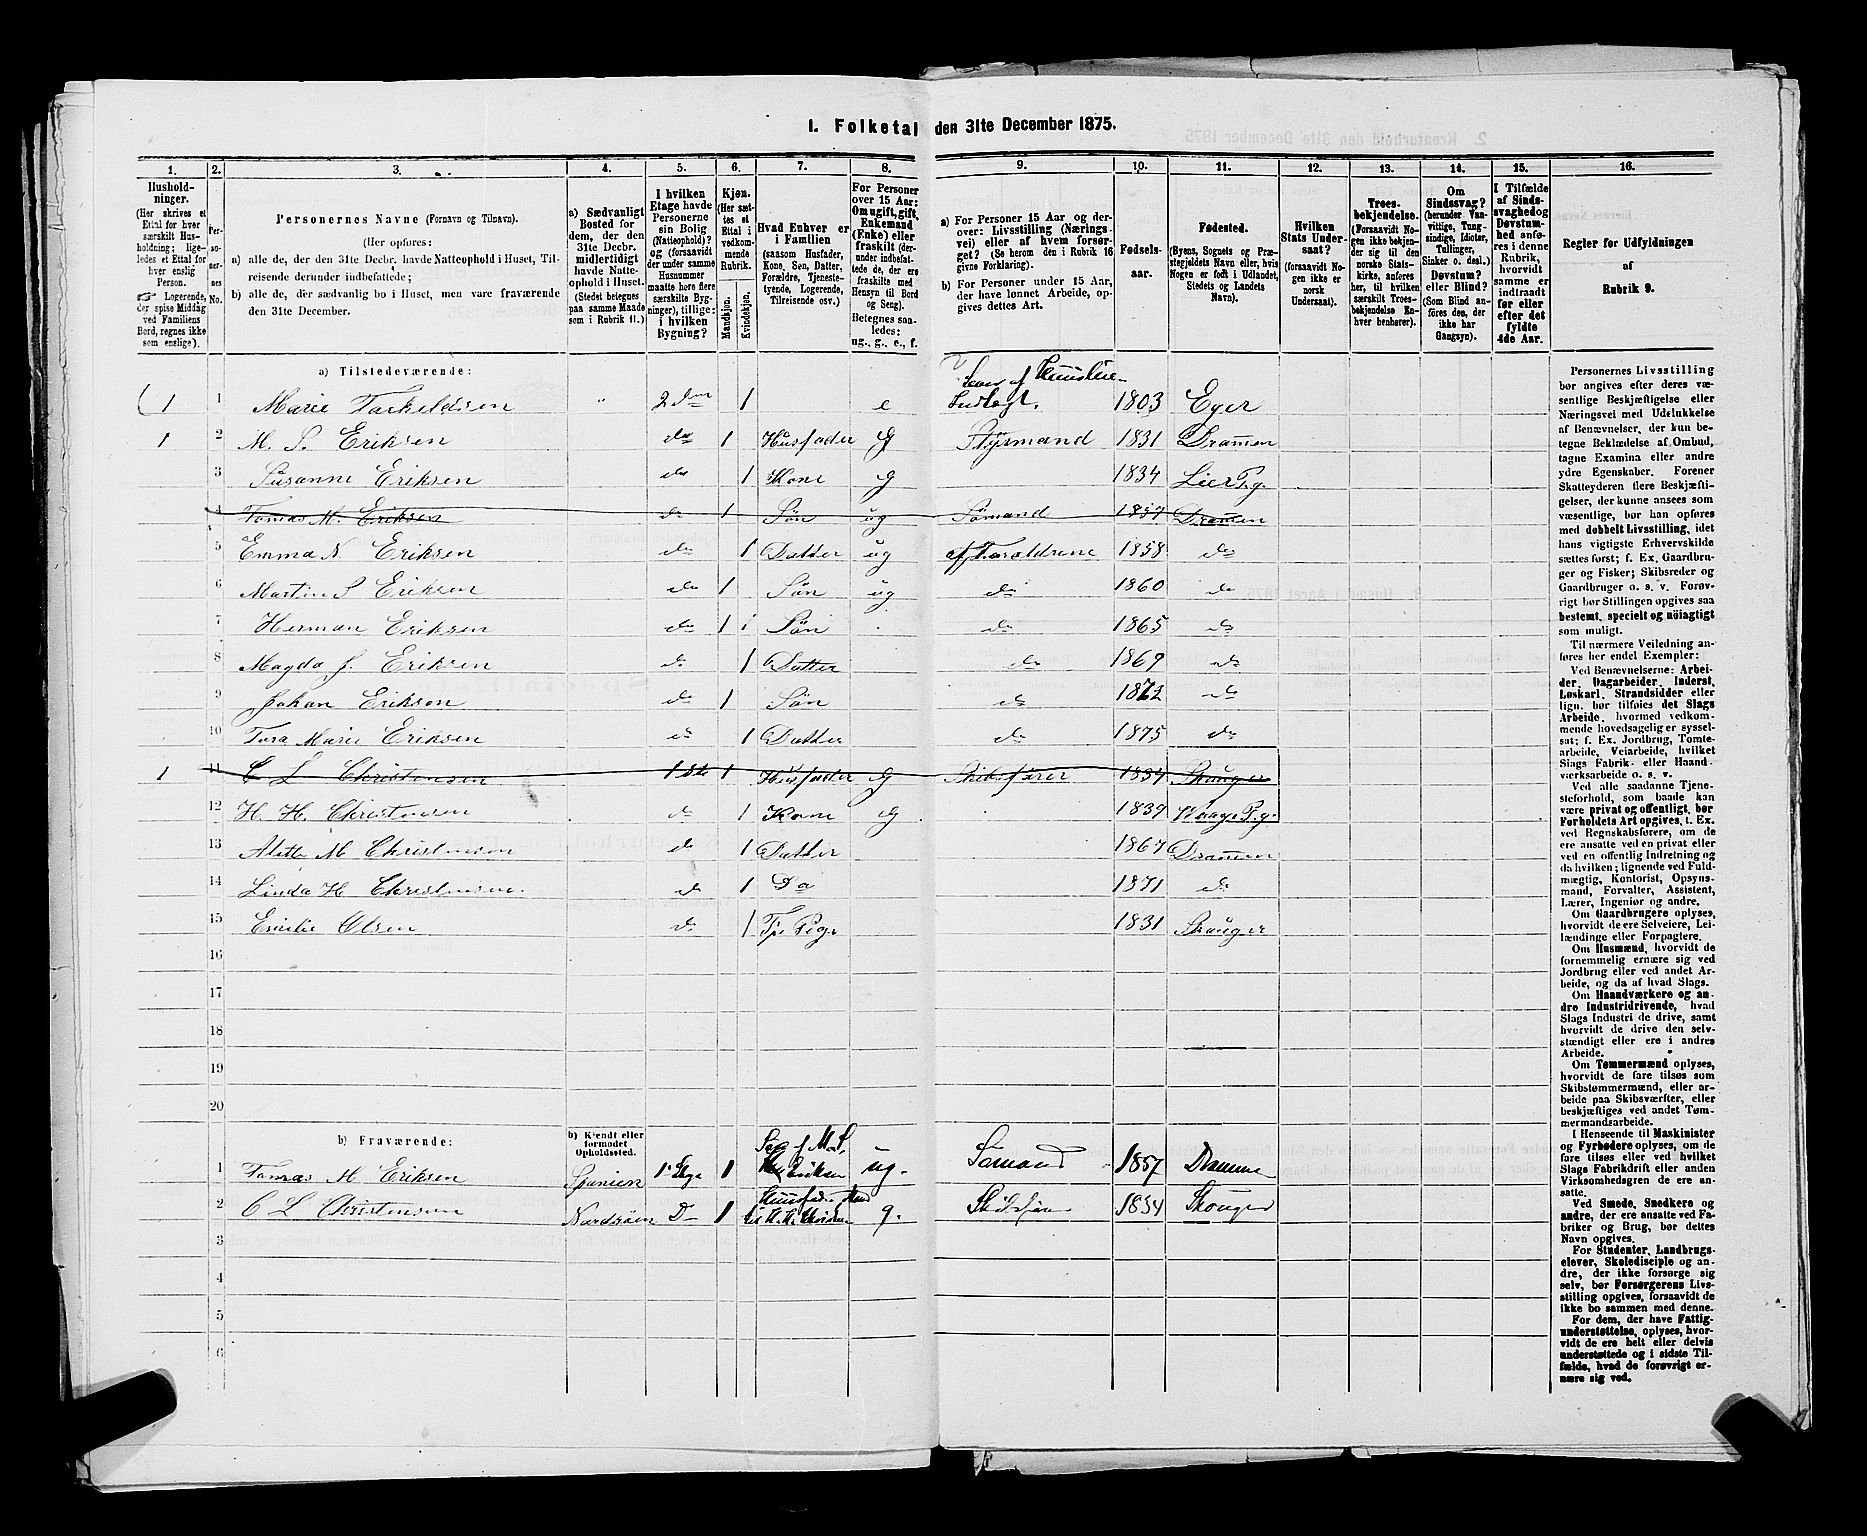 1. Folketal den 31te December 1875.
1. 2. 3. 4. 5. 6. 7. 8. 9. 10. 11. 12. 13. 14. 15. 16.
Hushold-
ninger.
(Her skrives et
Ettal for hver
særskilt Hus-
holdning; lige-
ledes et Ettal for
hver enslig
Person.
☞ Logerende,
der spise Middag
ved Familiens
Bord, regnes ikke
som enslige).
Per-
so-
ner-
nes
No.
Personernes Navne (Fornavn og Tilnavn).
(Her opføres:
a) alle de, der den 31te Decbr. havde Natteophold i Huset, Til-
reisende derunder indbefattede;
b) alle de, der sædvanlig bo i Huset, men vare fraværende
den 31te December.
a) Sædvanligt
Bosted for
dem, der den
31te Decbr.
midlertidigt
havde Natte-
ophold i Huset.
(Stedet betegnes
paa samme Maade
som i Rubrik 11.)
I hvilken
Etage havde
Personerne
sin Bolig
(Natteophold)?
og (forsaavidt
der under samme
Husnummer
maatte høre flere
særskilte Byg-
ninger), tillige:
i hvilken
Bygning?
Kjøn.
(Her sæt-
tes et
Ettal i
vedkom-
mende
Rubrik.
Mandskjøn.
Kvindekjøn.
Hvad Enhver er
i Familien
(saasom Husfader,
Kone, Søn, Datter,
Forældre, Tjeneste-
tyende, Logerende,
Tilreisende osv.)
For Personer
over 15 Aar:
Om ugift, gift,
Enkemand
(Enke) eller
fraskilt (der-
under indbefat-
tede de, der ere
fraskilte med
Hensyn til Bord
og Seng).
Betegnes saa-
ledes:
ug., g., e., f.
a) For Personer 15 Aar og der-
over: Livsstilling (Nærings-
vei) eller af hvem forsør-
get? (Se herom den i Rubrik 16
givne Forklaring).
b) For Personer under 15 Aar,
der have lønnet Arbeide, op-
gives dettes Art.
Fødsels-
aar.
Fødested.
(Byens, Sognets og Præ-
stegjeldets Navn eller, hvis
Nogen er født i Udlandet,
Stedets og Landets
Navn).
Hvilken
Stats Under-
saat?
(forsaavidt No-
gen ikke er
norsk
Undersaat).
Troes-
bekjendelse.
(Forsaavidt No-
gen ikke bekjen-
der sig til den
norske Stats-
kirke, anføres
her, til hvilken
særskilt Troes-
bekjendelse En-
hver henhører).
Om
Sindssvag?
(herunder Van-
vittige, Tung-
sindige, Idioter,
Tullinger,
Sinker o. desl.)
Døvstum?
eller Blind?
(Som Blind an-
føres den, der
ikke har
Gangsyn).
I Tilfælde
af Sinds-
svaghed og
Døvstum-
hed anfø-
res i denne
Rubrik,
hvorvidt
samme er
indtraadt
før eller
efter det
fyldte
4de Aar.
Regler for Udfyldningen
af
Rubrik 9.
a) Tilstedeværende:
1 1 Marie Torkeldsen " 2den 1 e Lever af Huusleie- Indtægt. 1803 Eger
1 2 M. S. Eriksen do 1 Husfader g Stysmand 1831 Drammen
3 Susanne Eriksen do 1 Kone g 1834 Lier P.g.
4 Tomas M. Eriksen do 1 Søn ug Sømand 1857 Drammen
5 Emma N Eriksen do 1 Datter ug af Foreldrene 1858 do
6 Martin S Eriksen do 1 Søn ug do 1860 do
7 Herman Eriksen do 1 Søn do 1865 do
8 Magda J. Eriksen do 1 Datter do 1869 do
9 Johan Eriksen do 1 Søn do 1872 do
10 Tora Marie Eriksen do 1 Datter do 1875 do
1 11 C L Christensen 1ste 1 Husfader g Skibsfører 1834 Skouger
12 H. H. Christensen do 1 Kone g 1839 P.g.
13 M Christensen do 1 Datter 1867 Drammen
14 Linda H Christensen. do 1 Do 1871 do
15 Emilie Olsen do 1 Tje Pige 1831 Skouger
16
17
18
19
20
b) Fraværende:
b) Kjendt eller
formodet
Opholdssted.
1 Tomas M. Eriksen Spanien 1ste Etage 1 Søn af M. S. Eriksen ug. Sømand 1857 Drammen
2 C L Christensen Nordsøen Do 1 Huusfader Mand til H. H. Christensen g. Skibsfører 1834 Skouger
3
4
5
6
Personernes Livsstilling
bør angives efter deres væ-
sentlige Beskjæftigelse eller
Næringsvei med Udelukkelse
af Benævnelser, der kun be-
tegne Beklædelse af Ombud,
tagne Examina eller andre
ydre Egenskaber. Forener
Skatteyderen flere Beskjæfti-
gelser, der kunne ansees som
væsentlige, bør han opføres
med dobbelt Livsstilling, idet
hans vigtigste Erhvervskilde
sættes først; f. Ex. Gaardbru-
ger og Fisker; Skibsreder og
Gaardbruger o. s. v. Forøv-
rigt bør Stillingen opgives saa
bestemt, specielt og nöiagtigt
som muligt.
Til nærmere Veiledning an-
føres her endel Exempler:
Ved Benævnelserne: Arbei-
der, Dagarbeider, Inderst,
Løskarl, Strandsidder eller
lign. bør tilføies det Slags
Arbeide, hvormed vedkom-
mende hovedsagelig er syssel-
sat; f. Ex. Jordbrug, Tomte-
arbeide, Veiarbeide, hvilket
Slags Fabrik- eller Haand-
værksarbeide o. s. v.
Ved alle saadanne Tjene-
steforhold, som baade kan
være privat og offentligt, bør
Forholdets Art opgives, f. Ex.
ved Regnskabsførere, om de
ere ansatte ved en privat eller
ved en offentlig Indretning og
da hvilken; lignende ved Fuld-
mægtig, Kontorist, Opsyns-
mand, Forvalter, Assistent,
Lærer, Ingeniør og andre.
Om Gaardbrugere oplyses,
hvorvidt de ere Selveiere, Lei-
lændinge eller Forpagtere.
Om Husmænd, hvorvidt de
fornemmelig ernære sig ved
Jordbrug eller ved andet Ar-
beide, og da af hvad Slags.
Om Haandværkere og an-
dre Industridrivende, hvad
Slags Industri de drive, samt
hvorvidt de drive den selv-
stændigt eller ere i andres
Arbeide.
Om Tømmermænd oplyses,
hvorvidt de fare tilsøs som
Skibstømmermænd, eller ar-
beide paa Skibsværfter, eller
beskjæftiges ved andet Tøm-
mermandsarbeide.
I Henseende til Maskinister
og Fyrbødere oplyses, om de
fare tilsøs eller ved hvilket
Slags Fabrikdrift eller anden
Virksomhedsgren de ere an-
satte.
Ved Smede, Snedkere og
andre, der ere ansatte ved Fa-
briker og Brug, bør dettes
Navn opgives.
For Studenter, Landbrugs-
elever, Skoledisciple og an-
dre, der ikke forsørge sig
selv, bør Forsørgerens Livs-
stilling opgives, forsaavidt de
ikke bo sammen med denne.
For dem, der have Fattig-
understøttelse, oplyses, hvor-
vidt de ere helt eller delvis
understøttede og i sidste Til-
fælde, hvad de forøvrigt er-
nære sig ved.